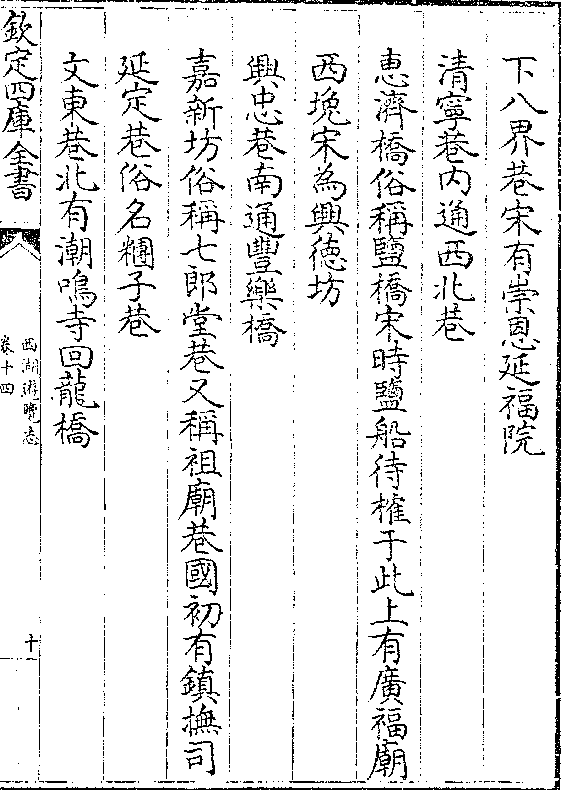 下八界巷宋有崇恩延福院
清寧巷内通西北巷
惠濟橋俗稱鹽橋宋時鹽船待榷于此上有廣福廟
西㙁宋為興徳坊
興忠巷南通豐樂橋
嘉新坊俗稱七郎堂巷又稱祖廟巷國初有鎮撫司
延定巷俗名糰子巷
文東巷北有潮鳴寺回龍橋
欽定四庫全書
西湖遊覽志
卷十四
十